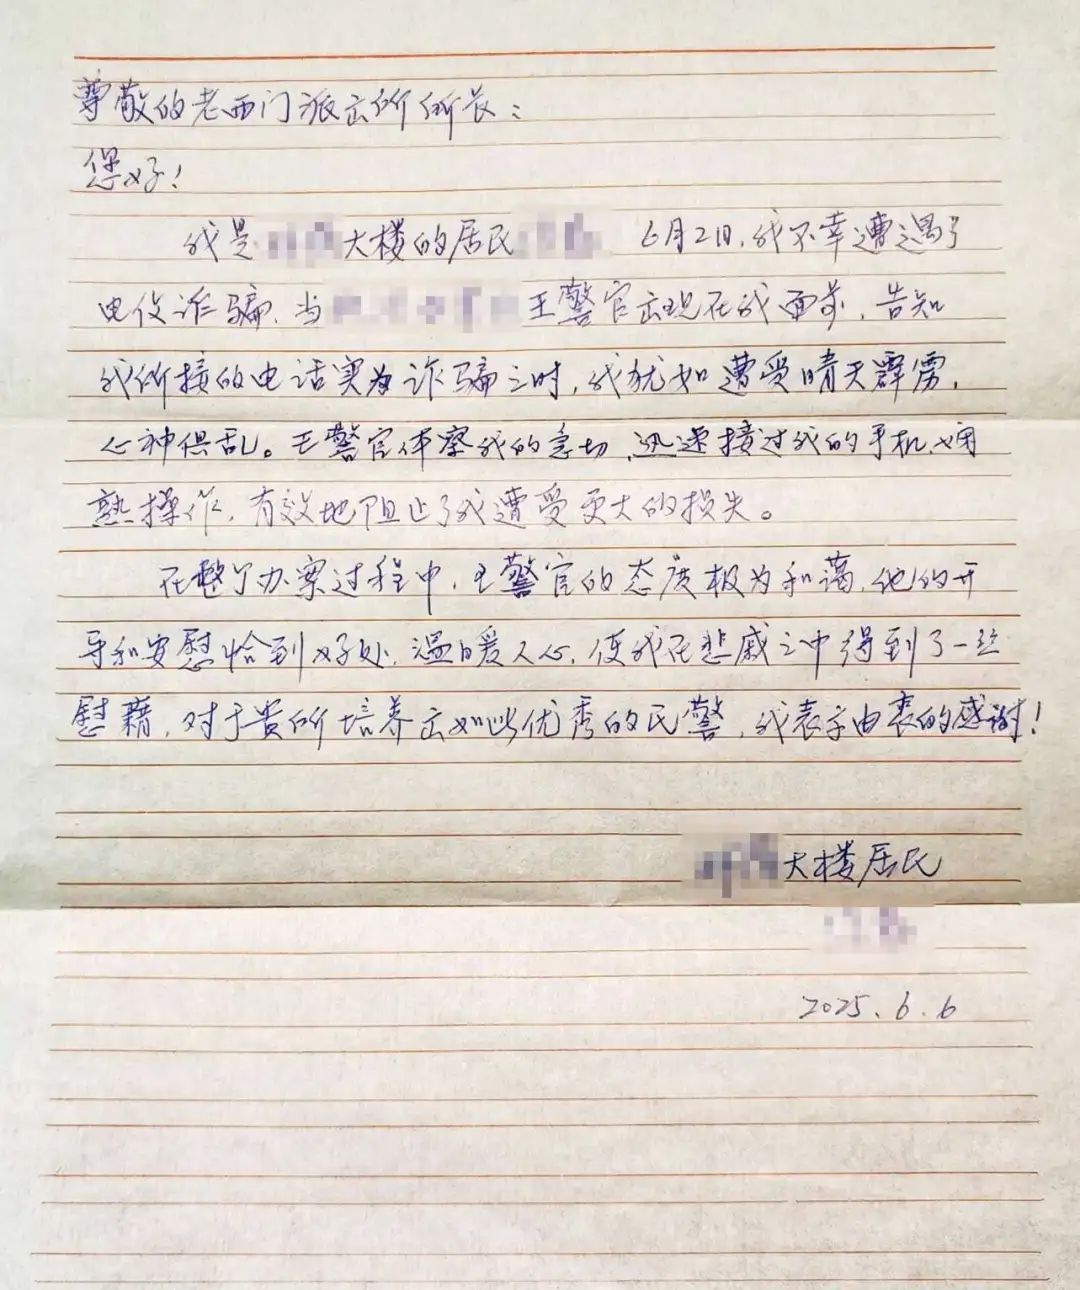 尊敬的老西门派出所所长：
您好！
我是 大楼的居民 6月2日，我不幸遭遇了
电信诈骗，当 王警官出现在我面前，告知
我所接的电话实为诈骗之时，我犹如遭受晴天霹雳，
心神俱乱。王警官体察我的急切，迅速接过我的手机，娴
熟操作，有效地阻止了我遭受更大的损失。
在整个办案过程中，王警官的态度极为和蔼，他的开
导和安慰恰到好处，温暖人心，使我在悲戚之中得到了一丝
慰藉，对于贵所培养出如此优秀的民警，我表示由衷的感谢！
大楼居民
2025.6.6